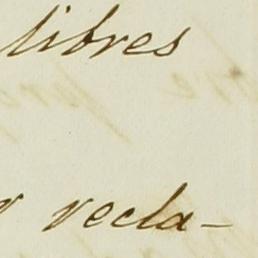 libres
recla-